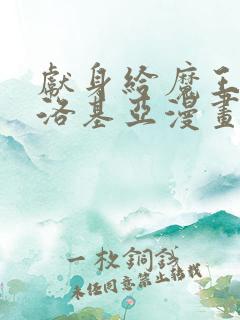 獻身給魔王
洛基亞漫畫
一枚銅錢
未經同意禁止轉載